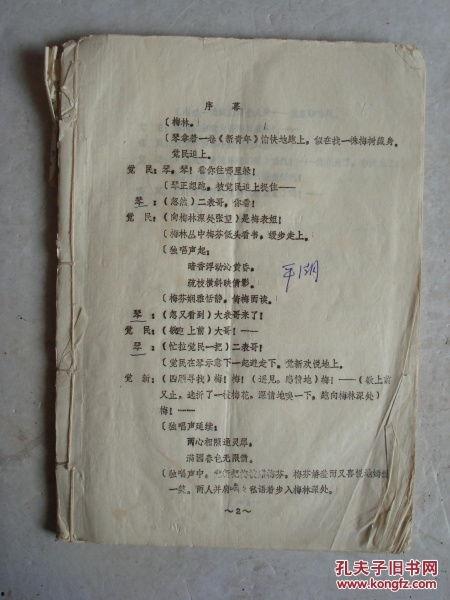 序　幕
〔梅林。
〔琴拿着一卷《新青年》愉快地跑上，似在找一株梅树藏身。
觉民追上。
觉　民：琴，琴！看你往哪里躲！
〔琴正想跑，被觉民追上捉住——
琴：（忽然）二表哥，你看！
觉　民：（向梅林深处张望）是梅表姐！
〔梅林丛中梅芬低头看书，缓步走上。
〔独唱声起：
暗香浮动沁黄昏，
疏枝横斜映倩影。
平湖
〔梅芬娴雅恬静，倚梅而读。
琴：（忽又看到）大表哥来了！
觉　民：（欲迎上前）大哥！——
琴：（忙拉觉民一把）二表哥！
〔觉民在琴示意下一起避走下。觉新欢悦地上。
觉　新：（四顾寻找）梅！梅！（遥见，感情地）梅！——（欲上前
又止，遂折了一枝梅花，深情地嗅一下，跑向梅林深处）
梅！——
〔独唱声延续：
两心相照通灵犀，
满园春色无限情。
〔独唱声中，觉新把梅枝赠梅芬，梅芬娇羞而又喜悦地嫣然
一笑。两人并肩 私语着步入梅林深处。
～2～
孔夫子旧书网
www.kongfz.com